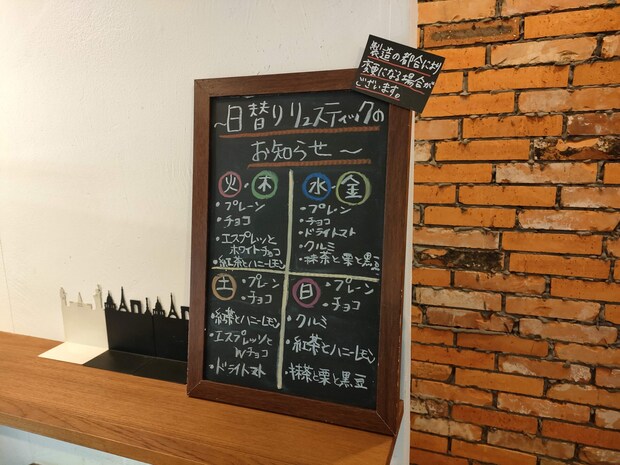 製造の都合により
変更になる場合が
ございます。
〜日替りリュスティックの
お知らせ〜
火・木
・プレーン
・チョコ
・エスプレッソと
ホワイトチョコ
・紅茶とハニーレモン
水・金
・プレーン
・チョコ
・ドライトマト
・クルミ
・抹茶と栗と黒豆
土
・プレーン
・チョコ
・紅茶とハニーレモン
・エスプレッソと
Wチョコ
・ドライトマト
日
・プレーン
・チョコ
・クルミ
・紅茶とハニーレモン
・抹茶と栗と黒豆
PARIS